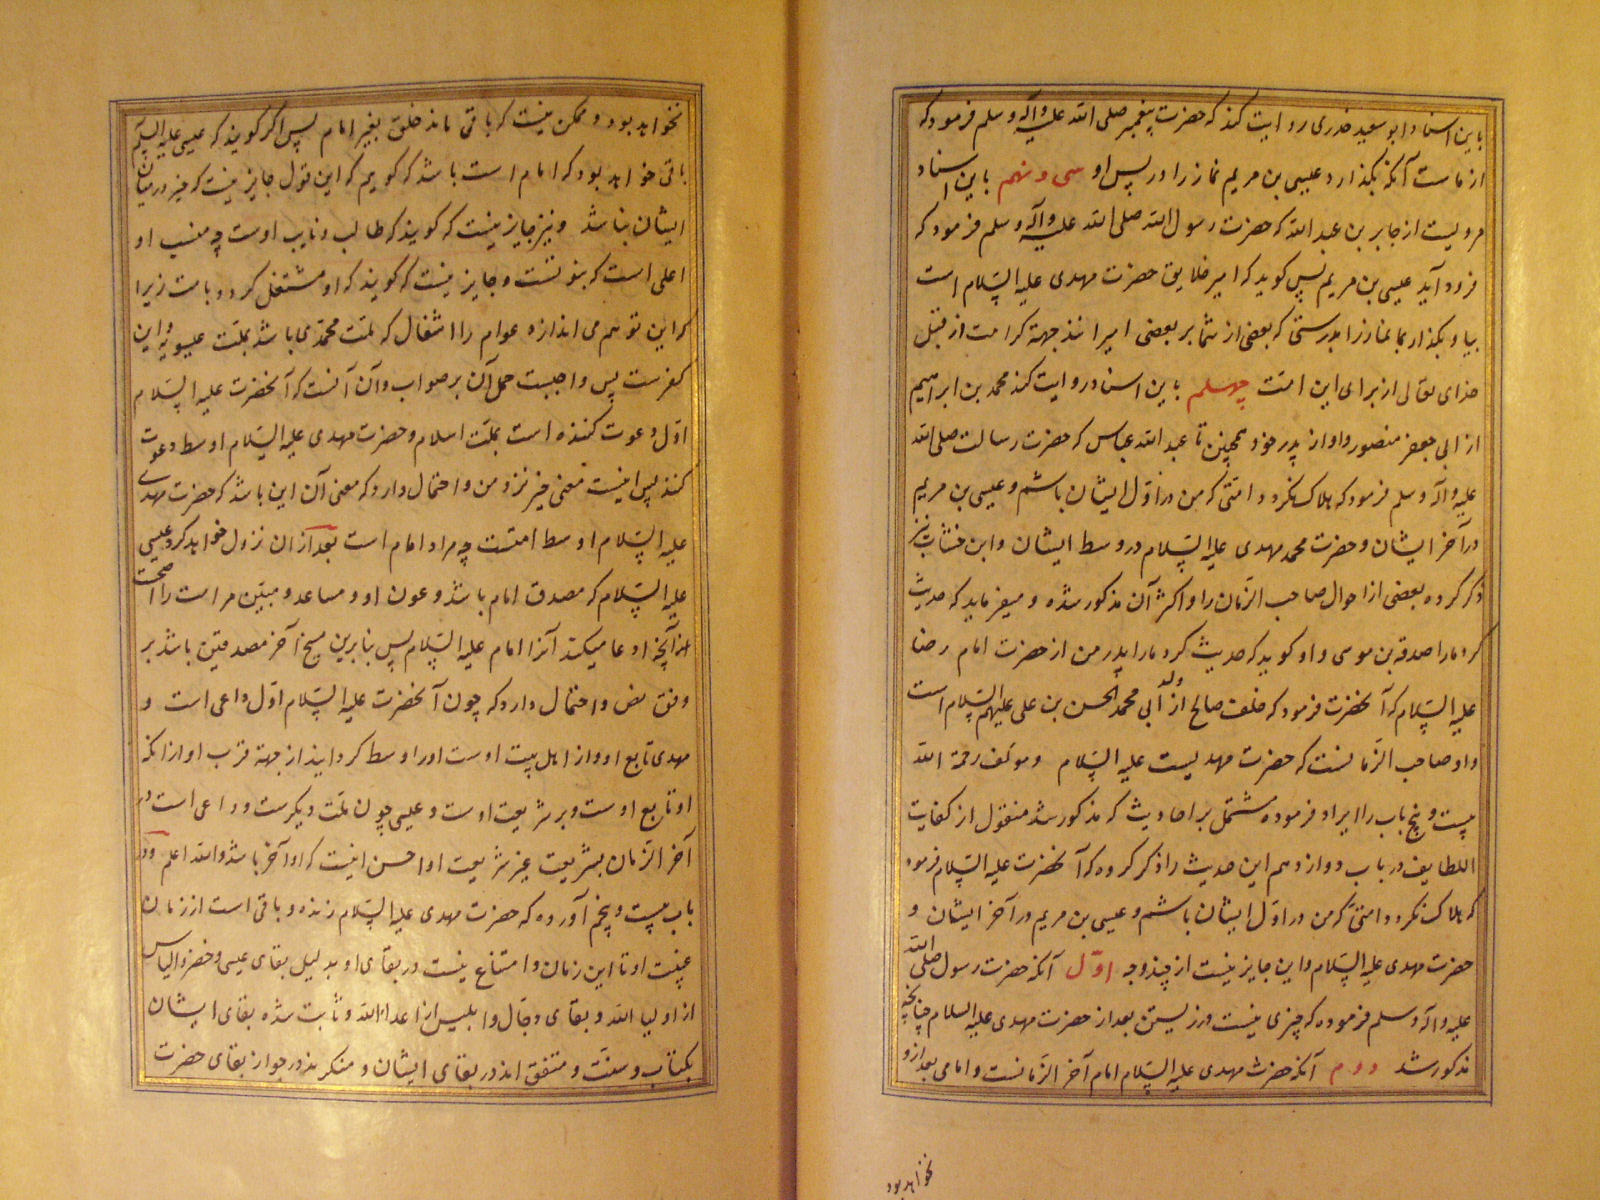 باین اسناد ابو سعید خدری روایت کند که حضرت پیغمبر صلی الله علیه وآله وسلم فرمود که
از ماست آنکه بگذارد عیسی بن مریم نماز را در پس او سی و نهم باین اسناد
مرویست از جابر بن عبد الله که حضرت رسول الله صلی الله علیه وآله وسلم فرمود که
فرود آید عیسی بن مریم پس کوید که امیر خلایق حضرت مهدی علیه السّلام است
بیا و بگذار بما نماز را بدرستی که بعضی از شما بر بعضی امیرانند جهة کرامت از قبل
خدای تعالی از برای این امّت چهلم باین اسناد روایت کند محمد بن ابراهیم
از ابی جعفر منصور و او از پدر خود همچنین تا عبد الله عباس که حضرت رسالت صلی الله
علیه وآله وسلم فرمود که هلاک نکردد امتی که من در اوّل ایشان باشم و عیسی بن مریم
در آخر ایشان و حضرت محمد مهدی علیه السّلام در وسط ایشان وابن خشاب نیز
ذکر کرده بعضی از احوال صاحب الزّمان را و اکثر آن مذکور شده و میفرماید که حدیث
کرد مارا صدقه بن موسی و او کوید که حدیث کرد مارا پدر من از حضرت امام رضا
علیه السّلام که آنحضرت فرمود که خلف صالح از ولد أبی محمد الحسن بن علی علیهم السّلام است
و او صاحب الزّمانست که حضرت مهدیست علیه السّلام ومولف رحمة الله
بیست و پنج باب را ایراد فرموده مشتمل بر احادیث که مذکور شد منقول از کفایت
الطالب در باب دوازدهم این حدیث را ذکر کرده که آنحضرت علیه السّلام فرمود
که هلاک نکردد امتی که من در اوّل ایشان باشم و عیسی بن مریم در آخر ایشان و
حضرت مهدی علیه السّلام و این جایز نیست از چند وجه اوّل آنکه حضرت رسول صلی الله
علیه وآله وسلم فرموده که چیزی نیست در زیستن بعد از حضرت مهدی علیه السلام چنانچه
مذکور شد دوم آنکه حضرت مهدی علیه السّلام امام آخر الزّمانست و امامی بعد از و
نخواهد بود
نخواهد بود و ممکن نیست که باقی ماند خلق بغیر امام پس اکر کویند که عیسی علیه السّلام
باقی خواهد بود که امام است باشد که کویم که این قول جایز نیست که خیر در میان
ایشان نباشد ونیز جایز نیست که کویند که طالب و نایب اوست چه منصب او
اعلی است که بنوشت و جایز نیست که کویند که او مشتغل کردد بامت زیرا
که این توهم می اندازد عوام را انتقال که ملّت محمّدی باشد بملّت عیسویه و این
کفرست پس واجبست حمل آن بر صواب و آن آنست که آنحضرت علیه السّلام
اوّل دعوت کننده است بملّت اسلام و حضرت مهدی علیه السّلام اوسط دعوت
کننده پس اینست معنی خیر نزد من و احتمال دارد که معنی آن این باشد که حضرت مهدی
علیه السّلام اوسط امتست چه مراد امام است بعد از ان نزول خواهد کرد عیسی
علیه السّلام که مصدق امام باشد و عون او و مساعد و مبیّن مر است را صحّت
از آنچه ادعا میکند آنرا امام علیه السّلام پس بنابرین مسیح آخر مصدقین باشد بر
وفق نص و احتمال دارد که چون آنحضرت علیه السّلام اوّل داعی است و
مهدی تابع او و از اهل بیت اوست او را وسط کردانید از جهة قرب او از انکه
او تابع اوست و بر شریعت اوست و عیسی چون ملّت دیکرست و داعی است در
آخر الزّمان بشریعت غیر شریعت او احسن اینست که او آخر باشد والله اعلم و در
باب بیست و پنجم آورده که حضرت مهدی علیه السّلام زنده و باقی است از زمان
غیبت او تا این زمان و امتناع نیست در بقای او بدلیل بقای عیسی و خضر و الیاس
از اولیا الله و بقای دجّال و ابلیس از اعداء الله و ثابت شده بقای ایشان
بکتاب و سنّت و متفق اند در بقای ایشان و منکرند در جواز بقای حضرت